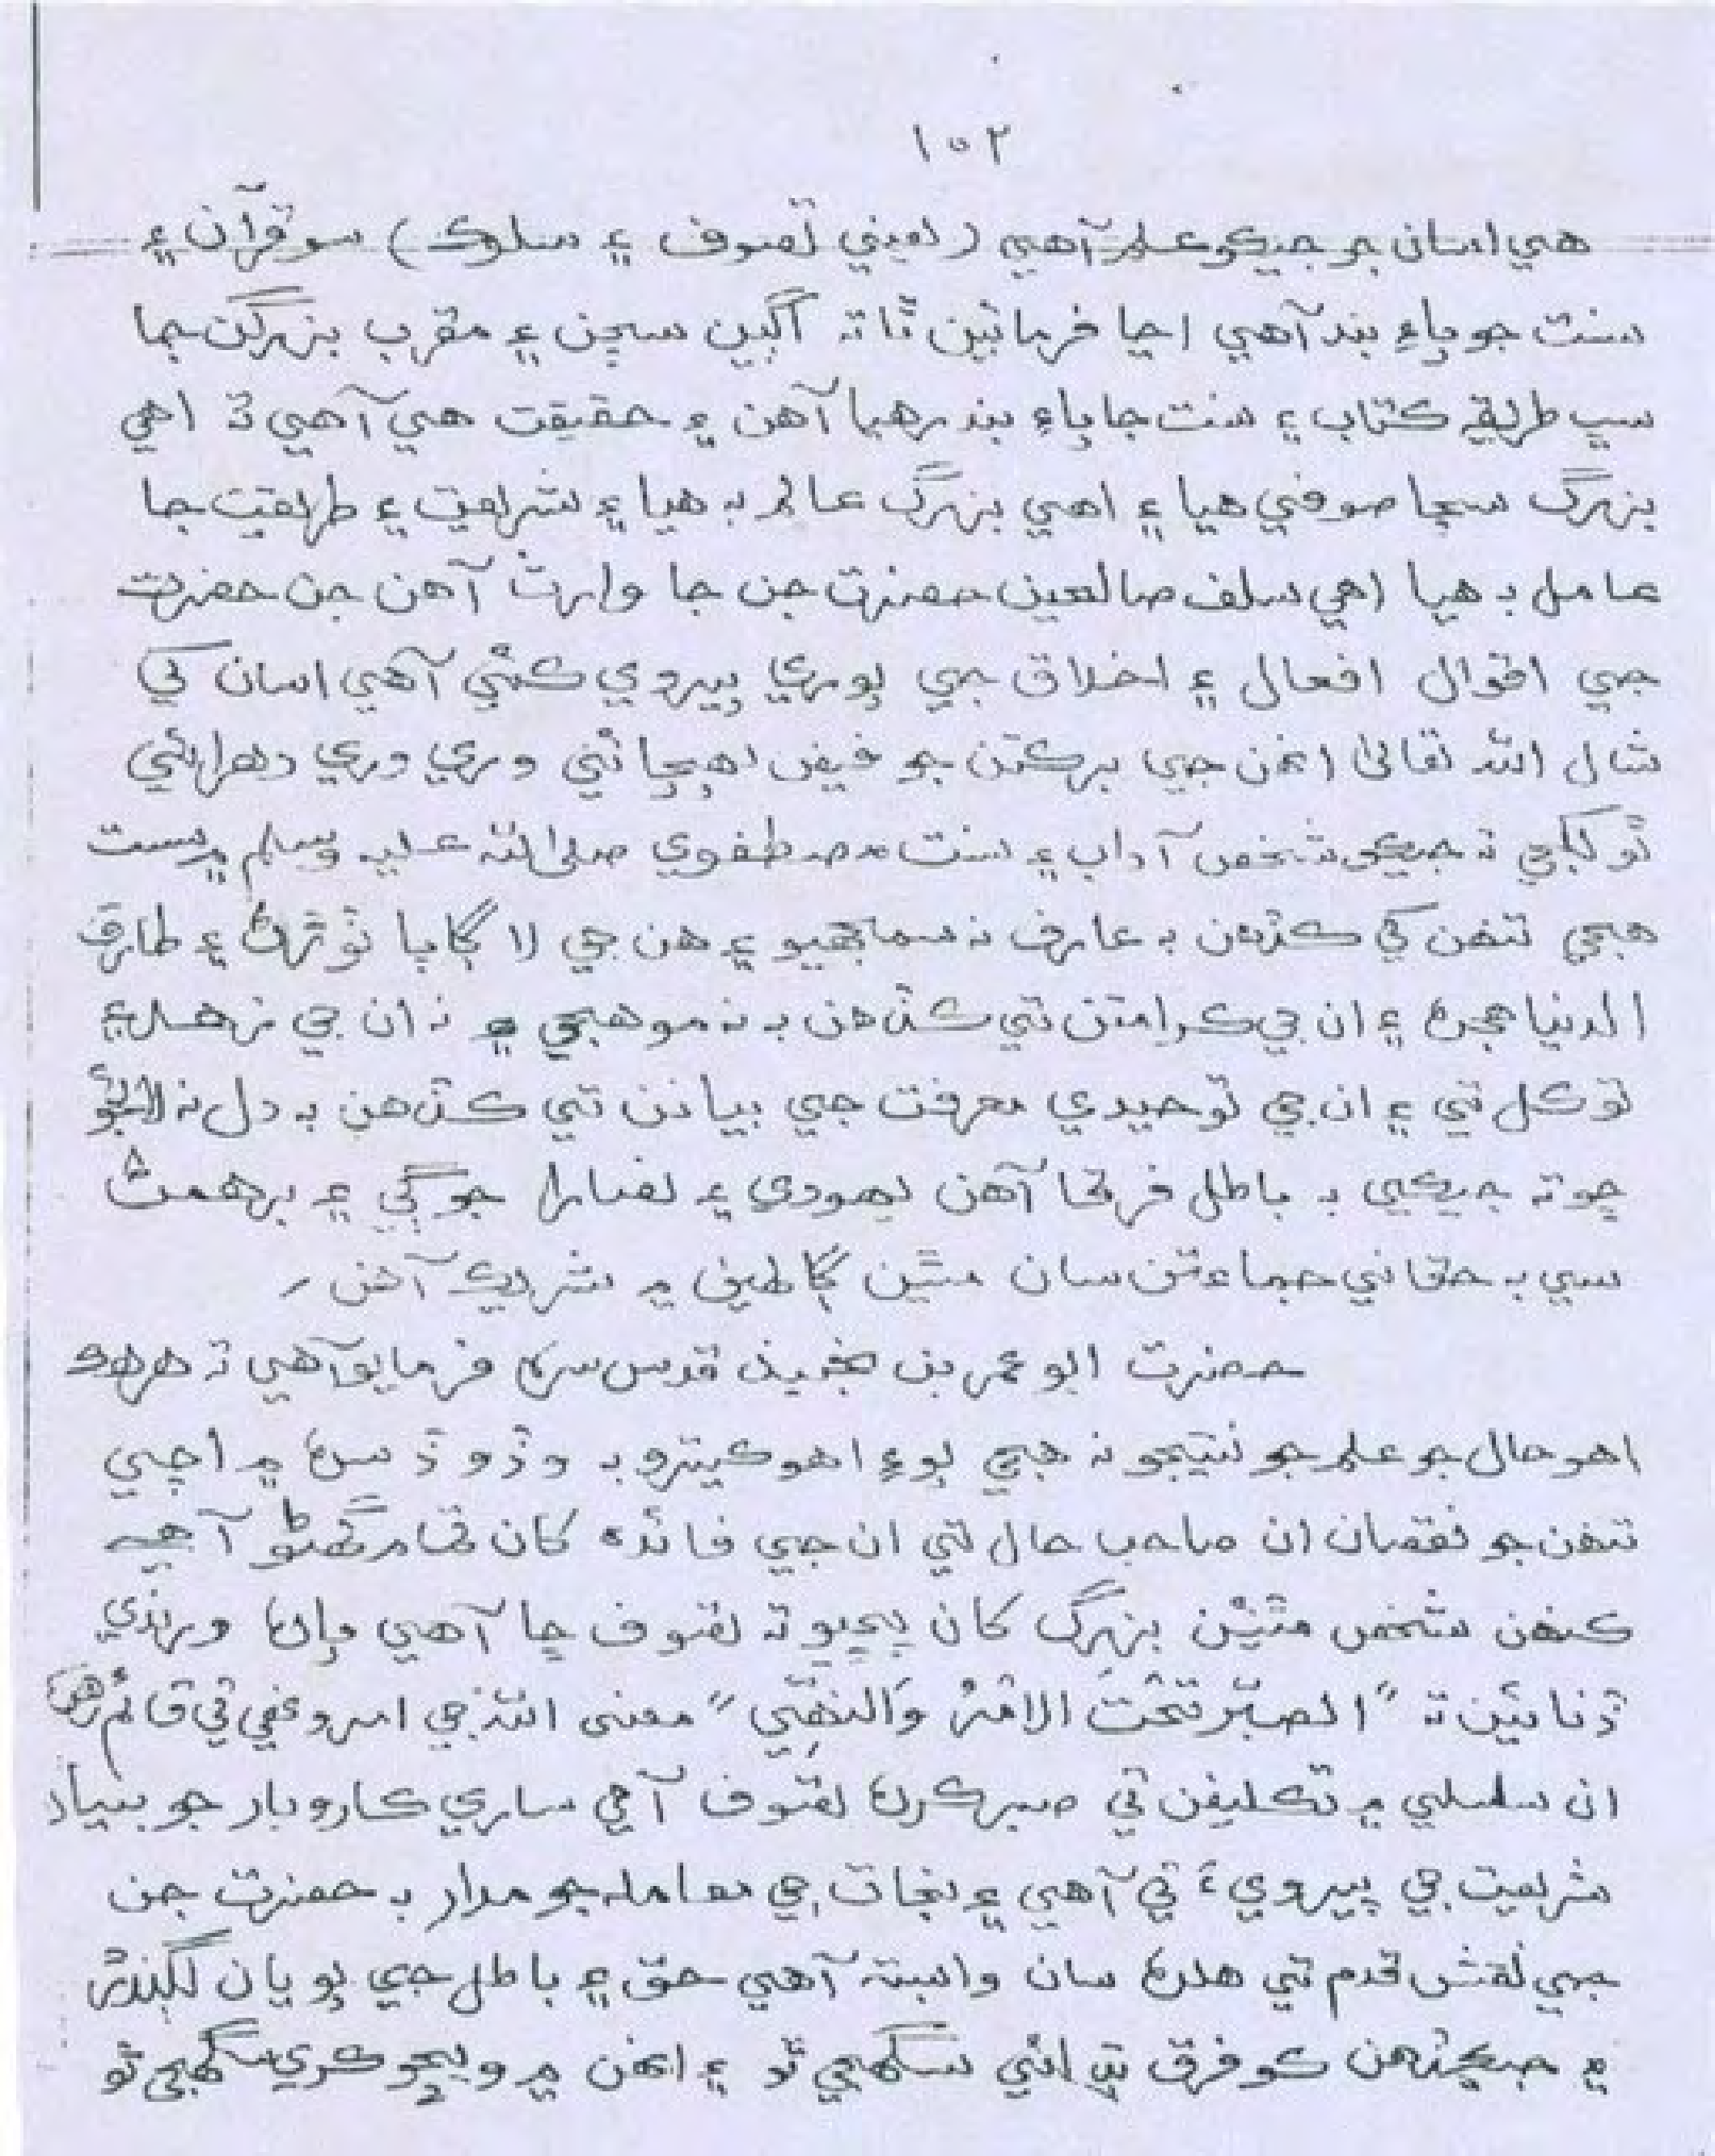 ١٥٢
هي اسان جو جيڪو علم آهي (يعني تصوف ۽ سلوڪ) سو قرآن ۽
سنت جو پاءِ بند آهي اڃا فرمائين ٿا ته اڳين سچن ۽ مقرب بزرگن جا
سڀ طريقه ڪتاب ۽ سنت جا پاءِ بند رهيا آهن ۽ حقيقت هي آهي ته اهي
بزرگ سچا صوفي هيا ۽ اهي بزرگ عالم به هيا ۽ شريعت ۽ طريقت جا
عامل به هيا اهي سلف صالحين حضرت جن جا وارث آهن جن حضرت
جي اقوال افعال ۽ اخلاق جي پوري پيروي ڪئي آهي اسان کي
شال الله تعالىٰ انهن جي برڪتن جو فيض پهچائي وري وري دهرائي
ٿو لکجي ته جيڪو شخص آداب ۽ سنت مصطفوي صلى الله عليه وسلم ۾ سست
هجي تنهن کي ڪڏهن به عارف نه سمجهيو ۽ هن جي لاڳاپا ٽوڙڻ ۽ طارق
الدنيا هجڻ ۽ ان جي ڪرامتن تي ڪڏهن به نه موهجي ۽ نه ان جي زهد ۽
توڪل تي ۽ ان جي توحيدي معرفت جي بيانن تي ڪڏهن به دل نه
ڇو ته جيڪي به باطل فرقا آهن يهودي ۽ نصارا جوڳي ۽ برهمڻ
سي به حقاني جماعتن سان مٿين ڳالهين ۾ شريڪ آهن ۔
حضرت ابو عمر بن نجيد قدس سره فرمايو آهي ته هر هڪ
اهو حال جو علم جو نتيجو نه هجي پوءِ اهو ڪيترو به وڏو ڏسڻ ۾ اچي
تنهن جو نقصان ان صاحب حال تي ان جي فائده کان تمام گهڻو آهي
ڪنهن شخص مٿين بزرگ کان پڇيو ته تصوف ڇا آهي پاڻ ورندي
ڏنائين ته ”الصبر تحت الامر والنهي“ معنى الله جي امر و نهي تي قائم رهڻ
ان سلسلي ۾ تڪليفن تي صبر ڪرڻ تصوف آهي ساري ڪاروبار جو بنياد
شريعت جي پيرويءَ تي آهي ۽ نجات جي معامله جو مدار به حضرت جن
جي نقش قدم تي هلڻ سان وابسته آهي حق ۽ باطل جي پويان لڳندڙ
۾ جيڪڏهن ڪو فرق ڀانئي سگهجي ٿو ۽ انهن ۾ ويڇو ڪري سگهجي ٿو